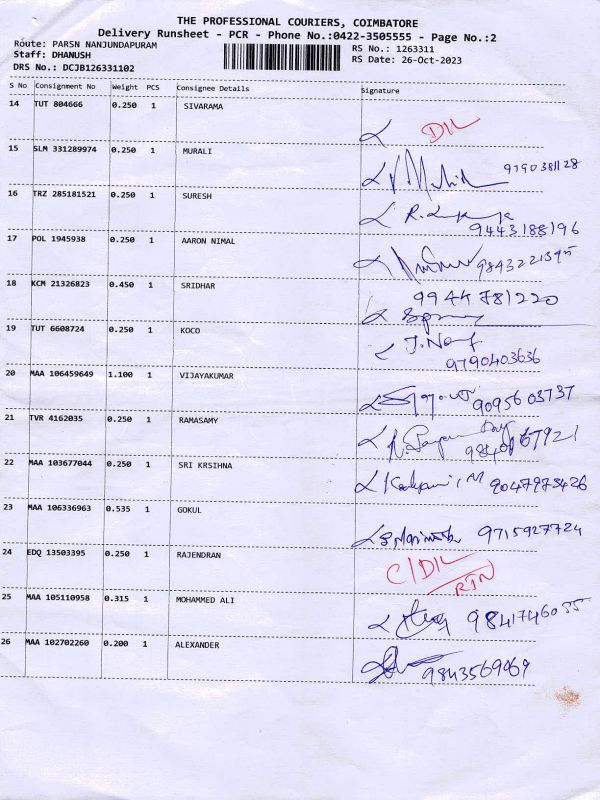 THE PROFESSIONAL COURIERS, COIMBATORE
Delivery Runsheet - PCR - Phone No.:0422-3505555 - Page No.:2
Route: PARSN NANJUNDAPURAM
RS No.: 1263311
Staff: DHANUSH
RS Date: 26-Oct-2023
DRS No.: DCJB126331102
S No Consignment No Weight PCS Consignee Details Signature
14 TUT 804666 0.250 1 SIVARAMA
15 SLM 331289974 0.250 1 MURALI
16 TRZ 285181521 0.250 1 SURESH 9443188196
17 POL 1945938 0.250 1 AARON NIMAL 9843221395
18 KCM 21326823 0.450 1 SRIDHAR 9944781220
19 TUT 6608724 0.250 1 KOCO 9790403636
20 MAA 106459649 1.100 1 VIJAYKUMAR 9095603737
21 TVR 4162035 0.250 1 RAMASAMY
22 MAA 103677044 0.250 1 SRI KRSIHNA 9047973426
23 MAA 106336963 0.535 1 GOKUL 9715927724
24 EDQ 13503395 0.250 1 RAJENDRAN
25 MAA 105110958 0.315 1 MOHAMMED ALI 9841746035
26 MAA 102702260 0.200 1 ALEXANDER 9843569069